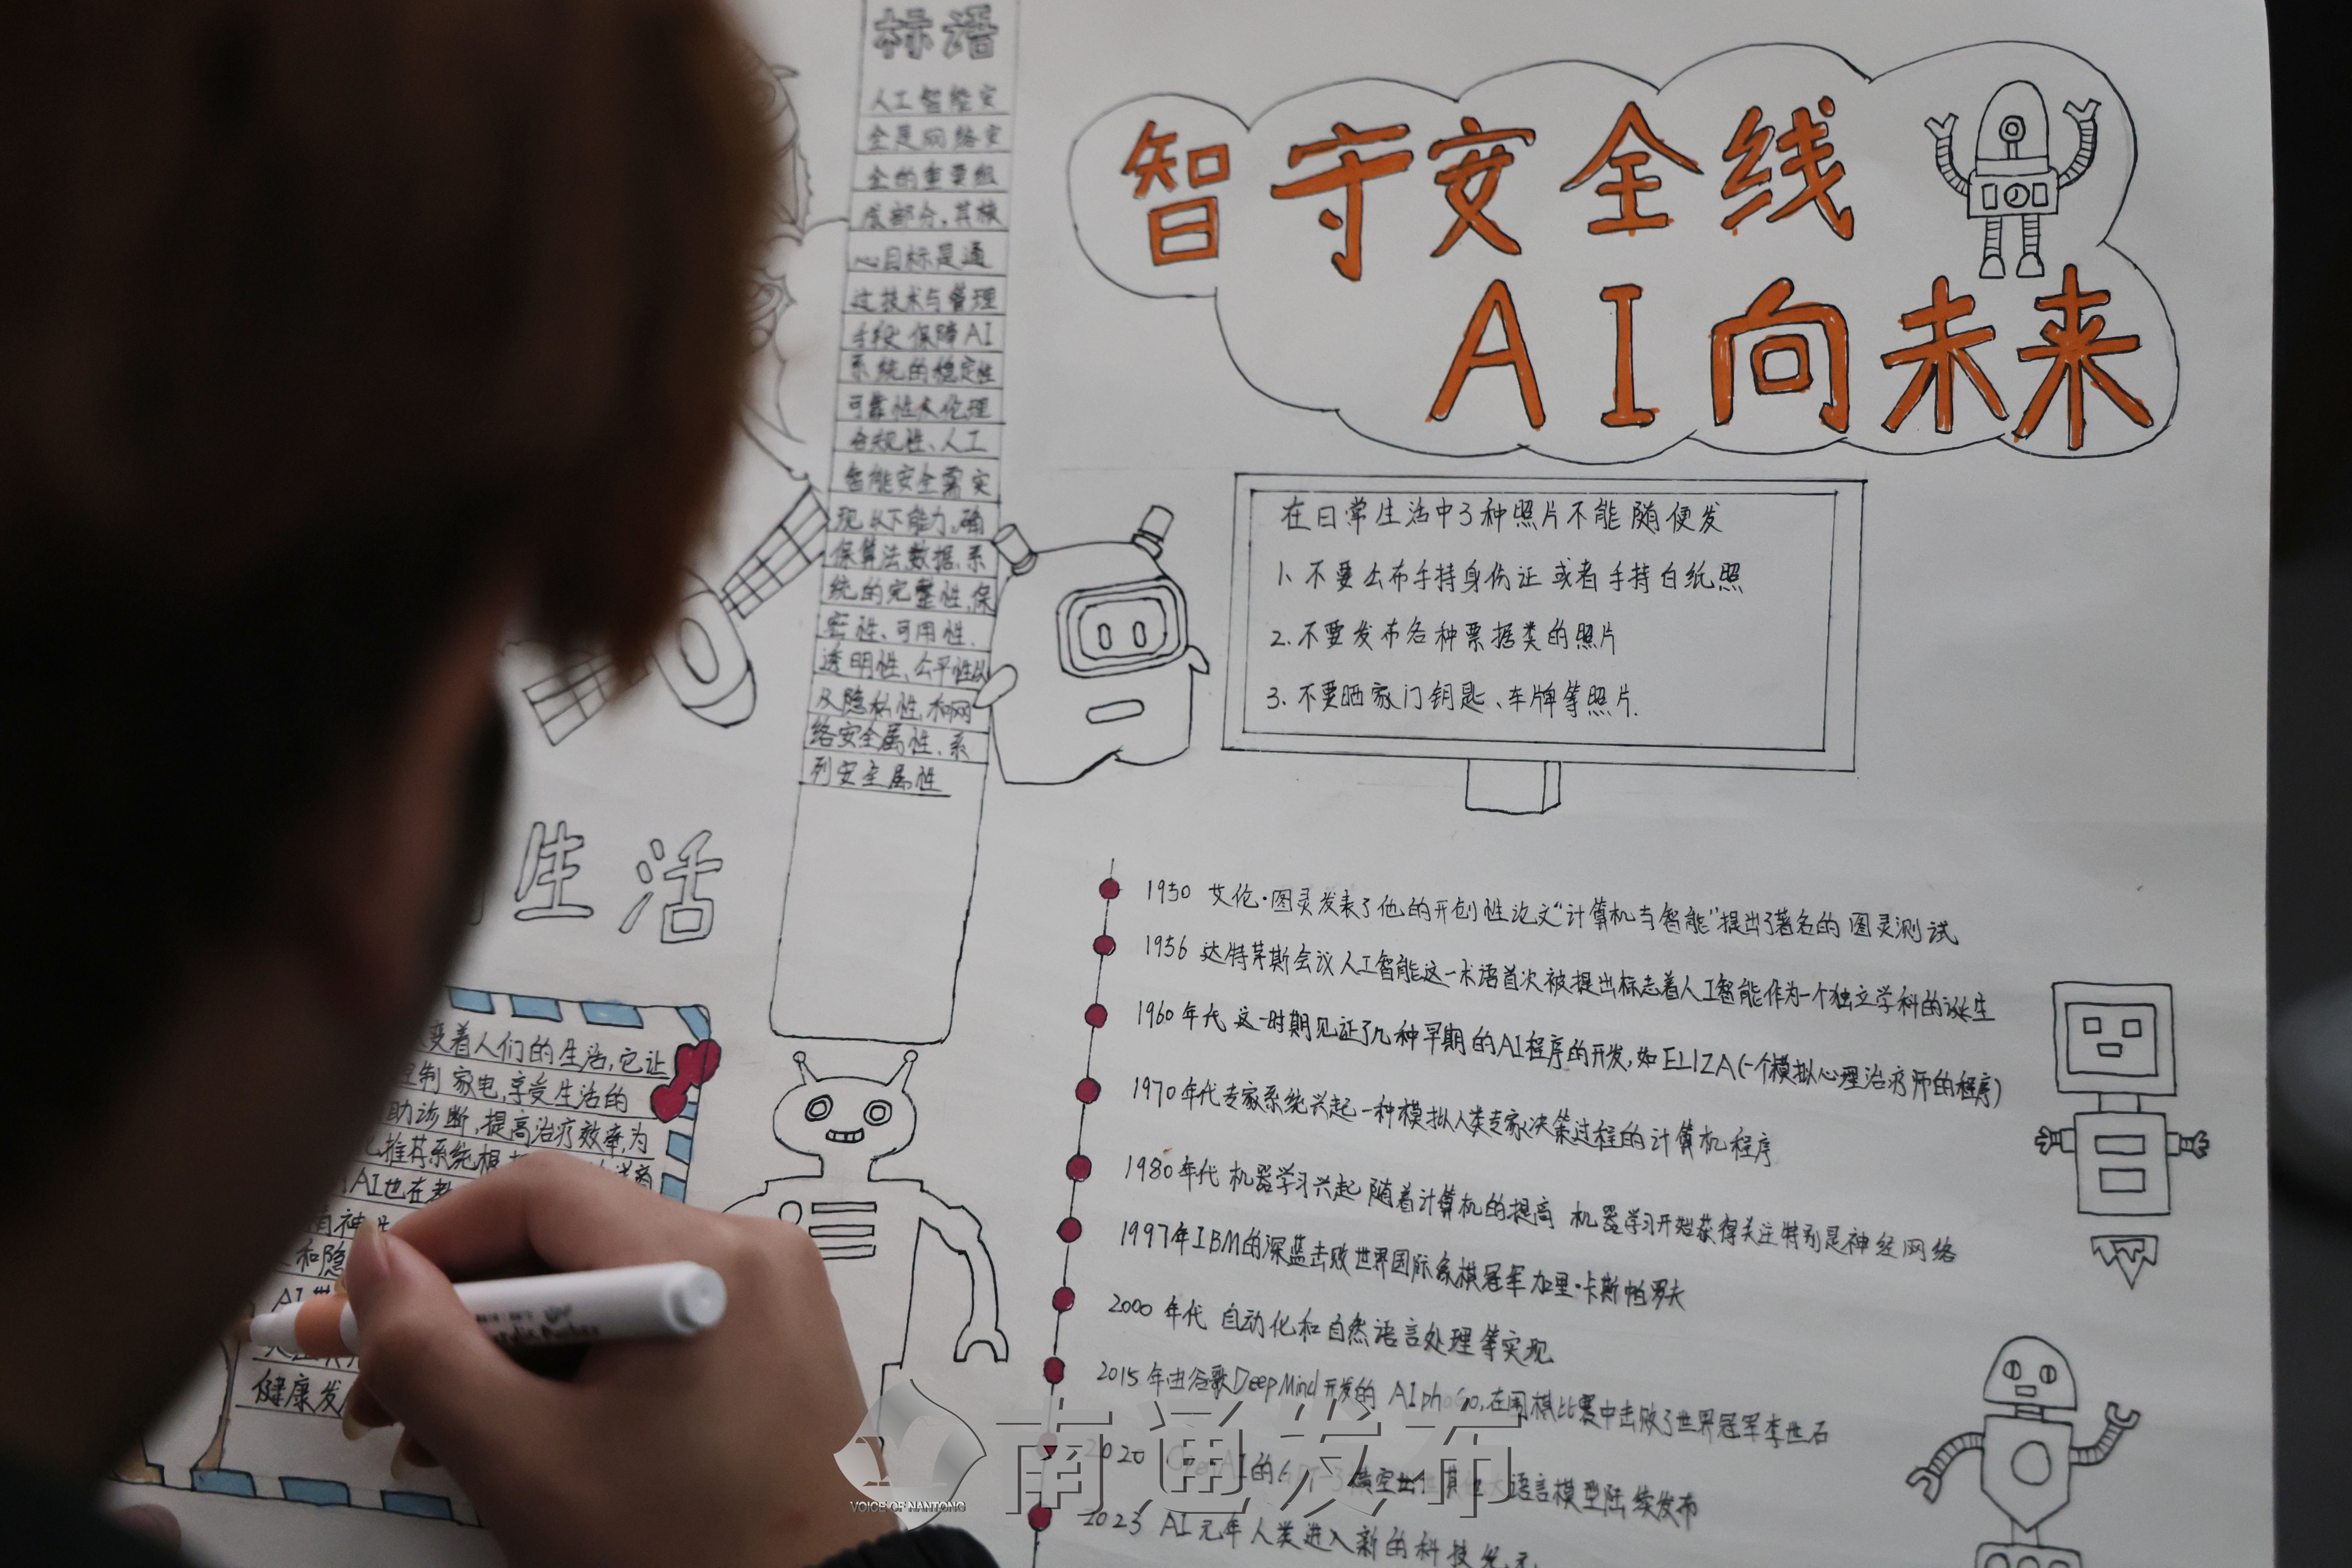 标语
人工智能安
全是网络安
全的重要组
成部分,其核
心目标是通
过技术与管理
手段 保障AI
系统的稳定性
可靠性和伦理
合规性、人工
智能安全需实
现以下能力,确
保算法数据、系
统的完整性,保
密性、可用性、
透明性、公平性以
及隐私性,和网
络安全属性、系
列安全属性
智守安全线
AI向未来
在日常生活中3种照片不能随便发
1、不要公布手持身份证或者手持白纸照
2.不要发布各种票据类的照片
3.不要晒家门钥匙、车牌等照片.
生活
变着人们的生活,它让
制家电,享受生活的
助诊断,提高治疗效率,为
推荐系统根
AI也在教
和隐
AI
健康发
1950 艾伦·图灵发表了他的开创性论文“计算机与智能”提出了著名的图灵测试
1956 达特茅斯会议人工智能这一术语首次被提出标志着人工智能作为一个独立学科的诞生
1960年代 这一时期见证了几种早期的AI程序的开发,如ELIZA(一个模拟心理治疗师的程序)
1970年代专家系统兴起一种模拟人类专家决策过程的计算机程序
1980年代 机器学习兴起 随着计算机的提高 机器学习开始获得关注特别是神经网络
1997年IBM的深蓝击败世界国际象棋冠军加里·卡斯帕罗夫
2000年代 自动化和自然语言处理等实现
2015年由谷歌DeepMind开发的 AlphaGo,在围棋比赛中击败了世界冠军李世石
2020 OpenAI的GPT-3横空出 语言模型陆续发布
2023 AI元年人类进入新的科技
VOICE OF NANTONG
南通发布